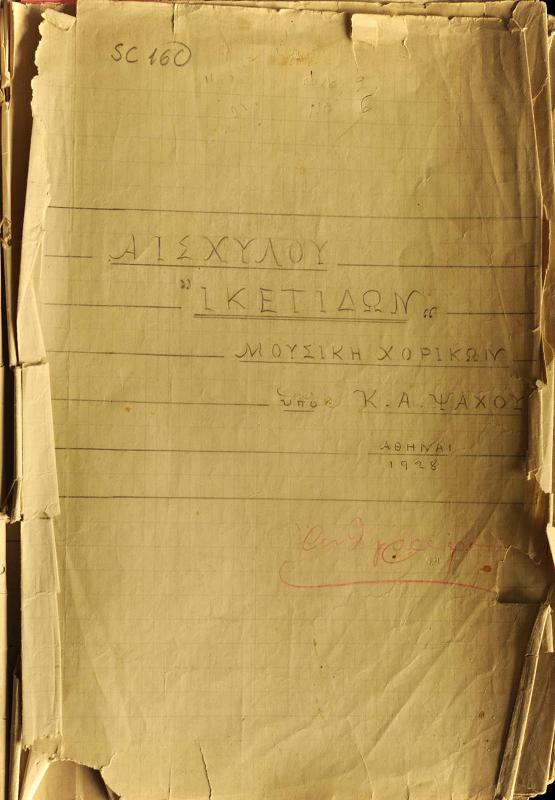 SC 160
6
ΑΙΣΧΥΛΟΥ
"ΙΚΕΤΙΔΩΝ"
ΜΟΥΣΙΚΗ ΧΟΡΙΚΩΝ
ὑπὸ Κ. Α. ΨΑΧΟΥ
ΑΘΗΝΑΙ
1928